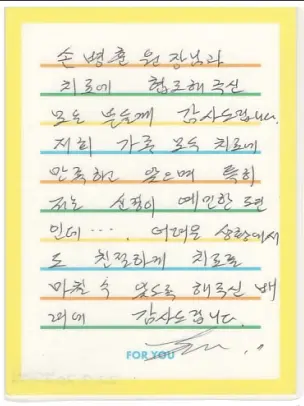 손병춘 원장님과
치료에 협조해 주신
모든 분들께 감사드립니다.
저희 가족 모두 치료에
만족하고 있으며 특히
저는 신경이 예민한 편
인데…. 어려운 상황에서
도 친절하게 치료를
마칠 수 있도록 해주신 배
려에 감사드립니다.
FOR YOU